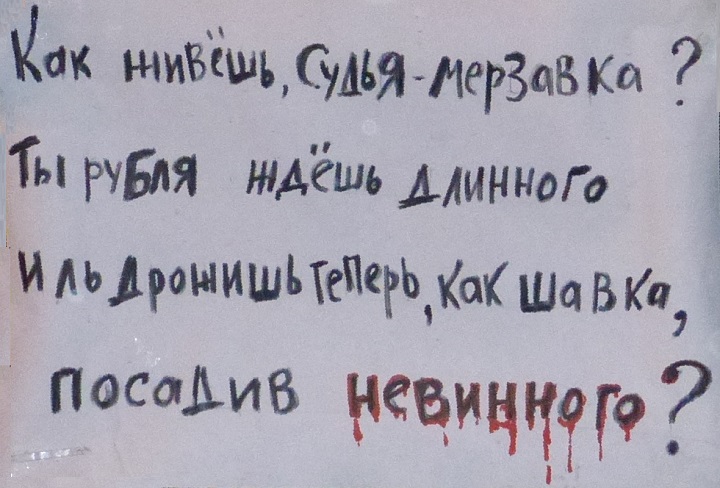 Как живёшь, Судья-мерзавка?
Ты рубля ждёшь длинного
Иль дрожишь теперь, как шавка,
посадив невинного?